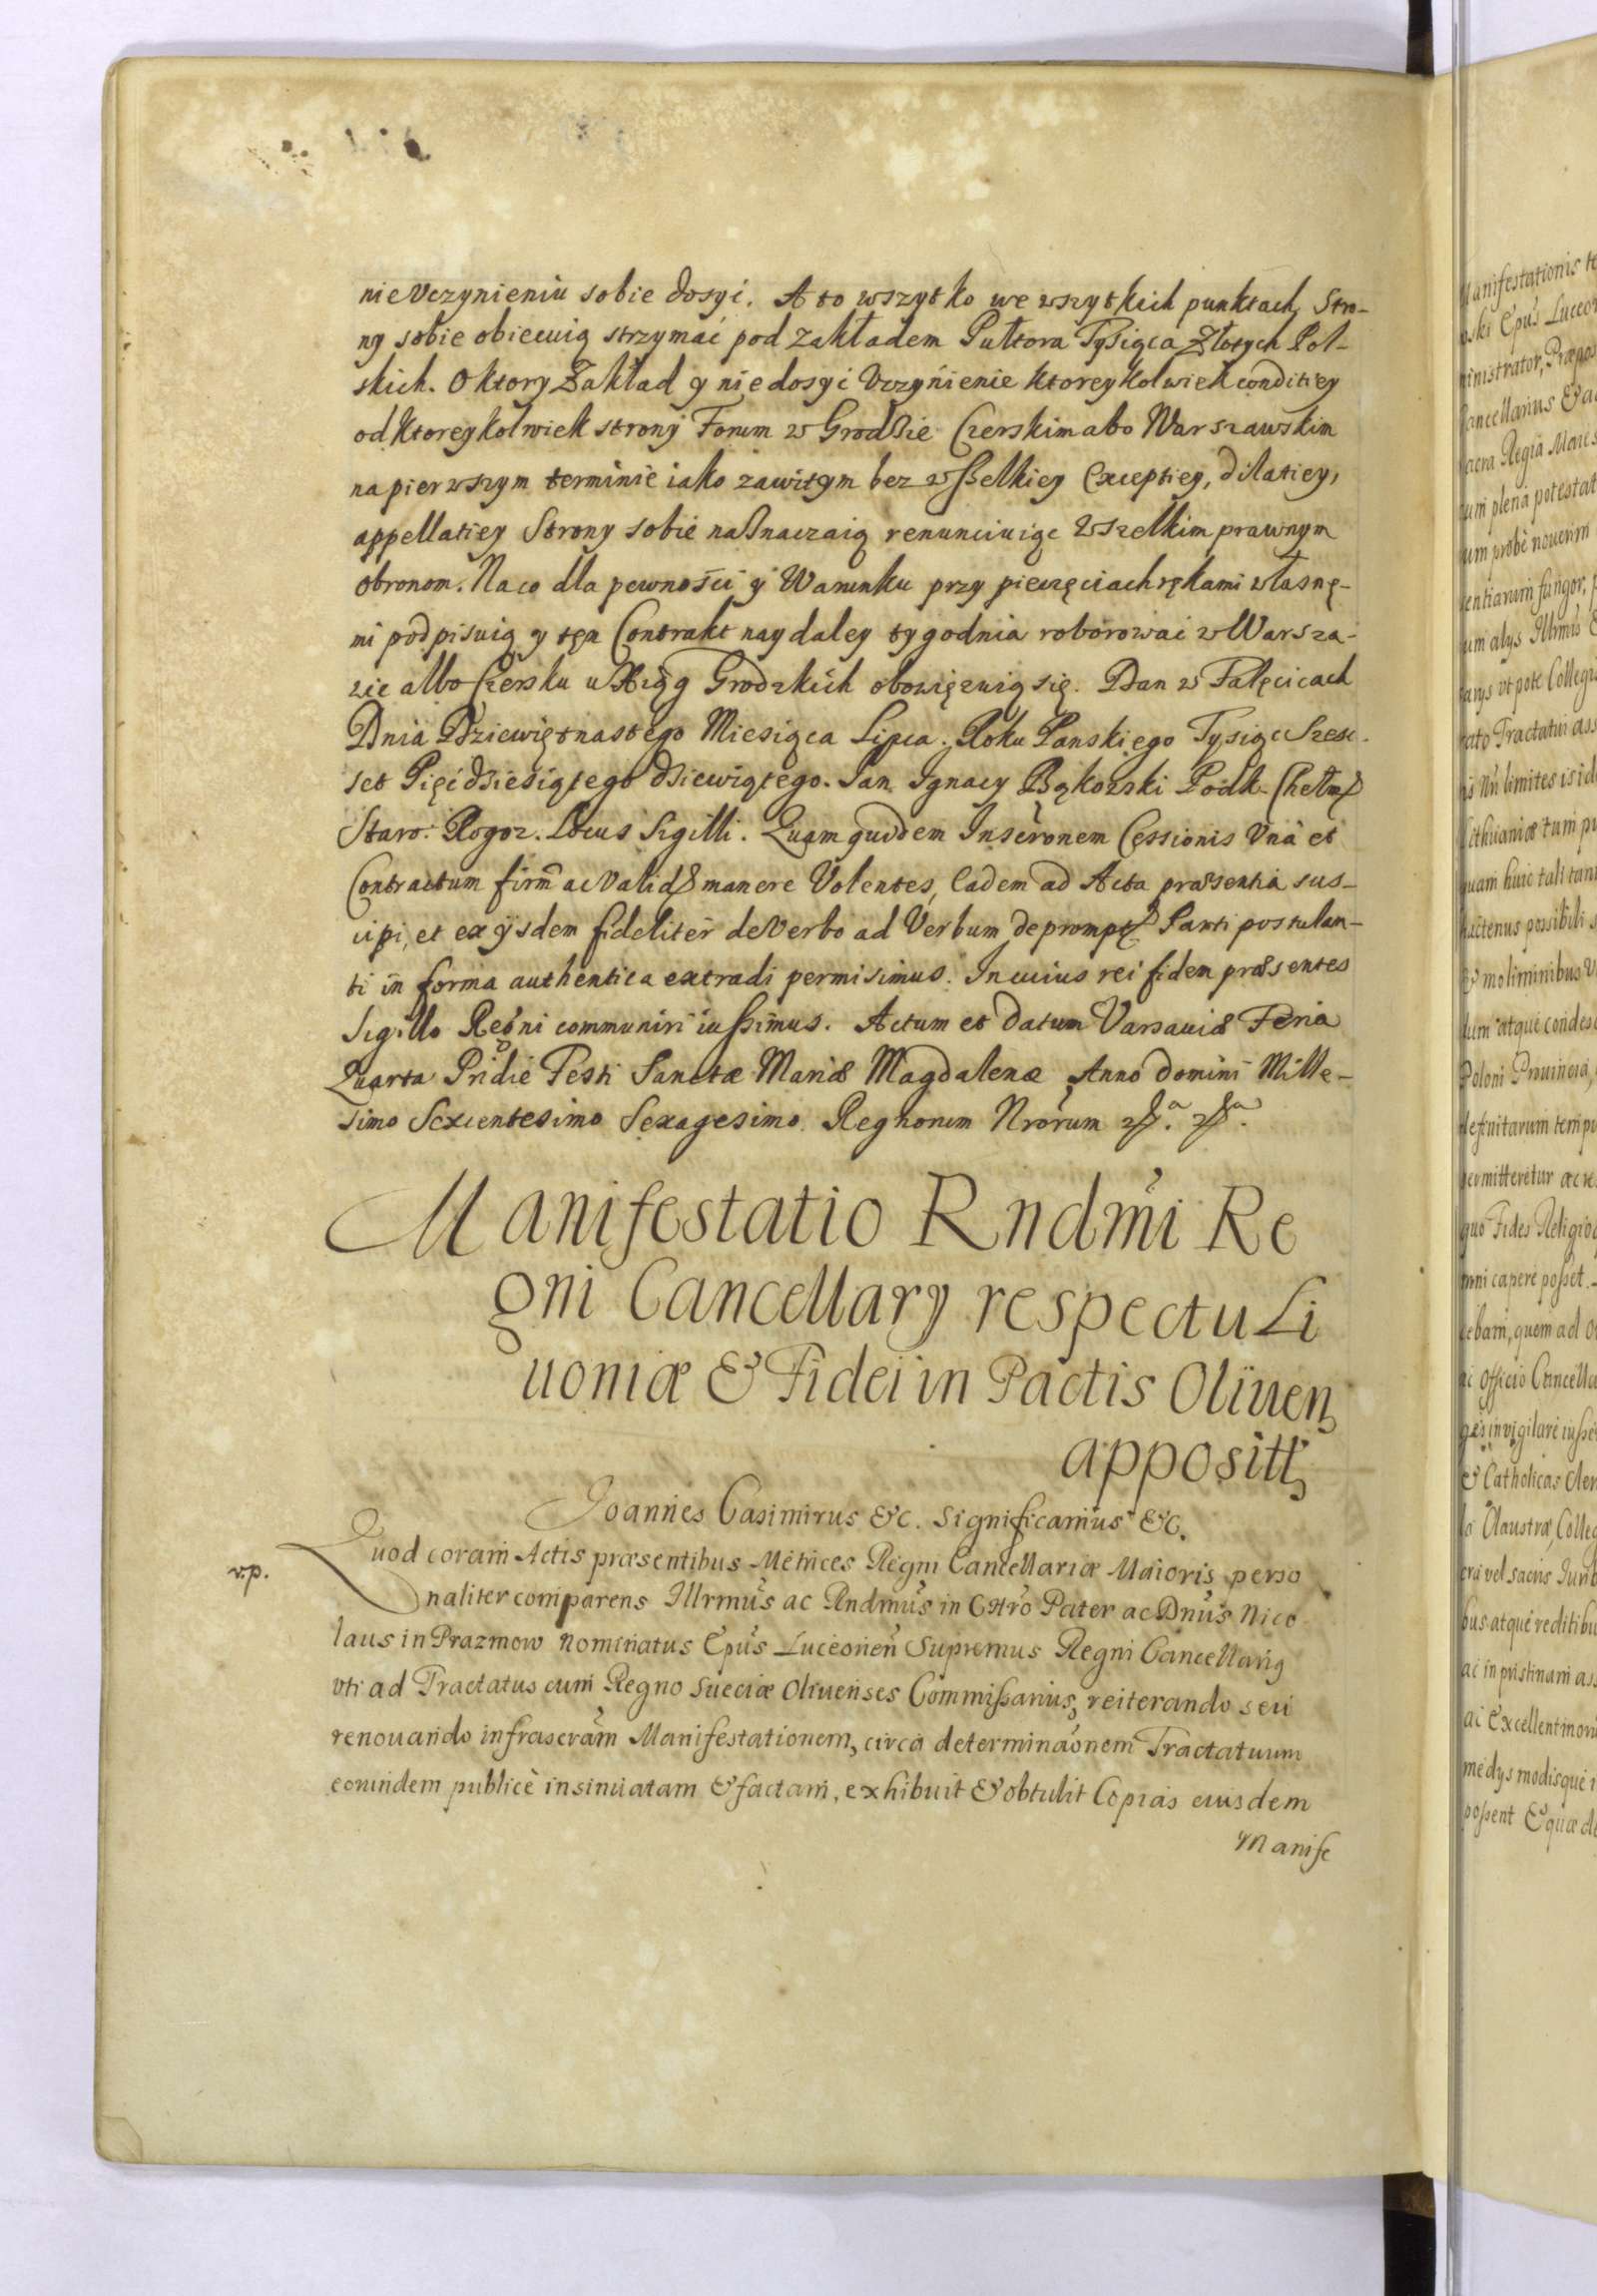 nie Vczynieniu sobie dosyć. A to wszytko we wszytkich punktach, Stro-
ny sobie obiecuią strzymać pod zakładem Pułtora Tysiąca Złotych Pol-
skich. O ktory Zakład y nie dosyć Vczynienie ktoreykolwiek conditiey
od ktoreykolwiek strony Forum w Grodzie Czerskim abo Warszawskim
na pierwszym terminie iako zawitym bez wszelkiey Exceptiey, dilatiey,
appellatiey Strony sobie naznaczaią renunciuiąc Wszelkim prawnym
obronom. Na co dla pewności y Warunku przy pieczęciach rękami własnę-
mi podpisuią y tęn Contrakt naydaley tygodnia roborować w Warsza-
wie albo Czersku u Xiąg Grodzkich obowięzuią się. Dan w Falęcicach
Dnia Dziewiętnastego Miesiąca Lipca. Roku Panskiego Tysiąc Szesc
set Pięćdziesiątego dziewiątego. Jan Ignacy Bąkowski Podk. Chełm
Staro: Rogoz. Locus Sigilli. Quam quidem Inserõnem Cessionis Vnà et
Contractum firm̃ ac Valid manere Volentes, Eadem ad Acta præsentia sus-
cipi, et ex ijsdem fideliter de Verbo ad Verbum deprompt Parti postulan-
ti in forma authentica extradi permisimus. In cuius rei fidem præsentes
Sigillo Regni communiri iussimus. Actum et datum Varsauiæ Feria
Quarta Pridie Festi Sanctæ Mariæ Magdalenæ Anno domini Mille-
simo Sexcentesimo Sexagesimo. Regnorum Nrõrum
Manifestatio Rndmi Re
gni Cancellary respectu Li
uoniæ & Fidei in Pactis Oliuen
apposit
Joannes Casimirus &c. Significamus &c.
v.p.
Quod coram Actis præsentibus Metrices Regni Cancellariæ Maioris perso
naliter comparens Illrmus ac Rndmus in Chro Pater ac Dnus Nico
laus in Prazmow Nominatus Epus Luceorien Supremus Regni Cancellarig
vti ad Tractatus cum Regno Sueciæ Oliuenses Commissarius, reiterando seu
renouando infrascram Manifestationem, circa determinãonem Tractatuum
eorundem publicè insinuatam & factam, exhibuit & obtulit Copias eiusdem
Manife